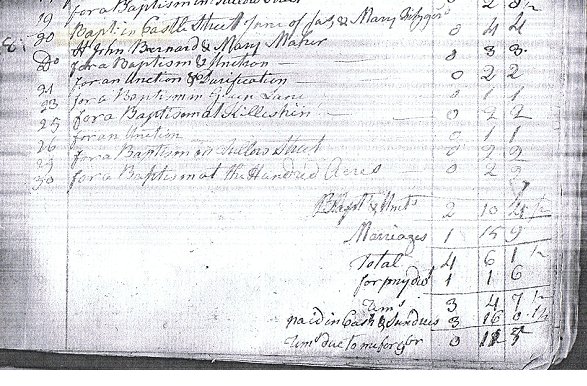 19 for a Baptism in Tullow Street
20 Bapt: in Castle Street Jane of Jas & Mary 0 4 4
John Bernard & Mary Maher
Do for a Baptism & Unction — 0 3 3
21 for an Unction & Purification — 0 2 2
23 for a Baptism in Green Lane 0 1 1
25 for a Baptism at Killeshin — 0 2 2
for an Unction 0 1 1
26 for a Baptism in Tullow Street 0 2 2
29
30 for a Baptism at the Hundred Acres — 0 2
Bapts & Uncts 2 10 4 ½
Marriages 1 15 9
Total 4 6 1 ½
for my 1 1 6
3 4 7 ½
paid in Cash & Sundries 3 16 0 ½
due to me for 0 11 5